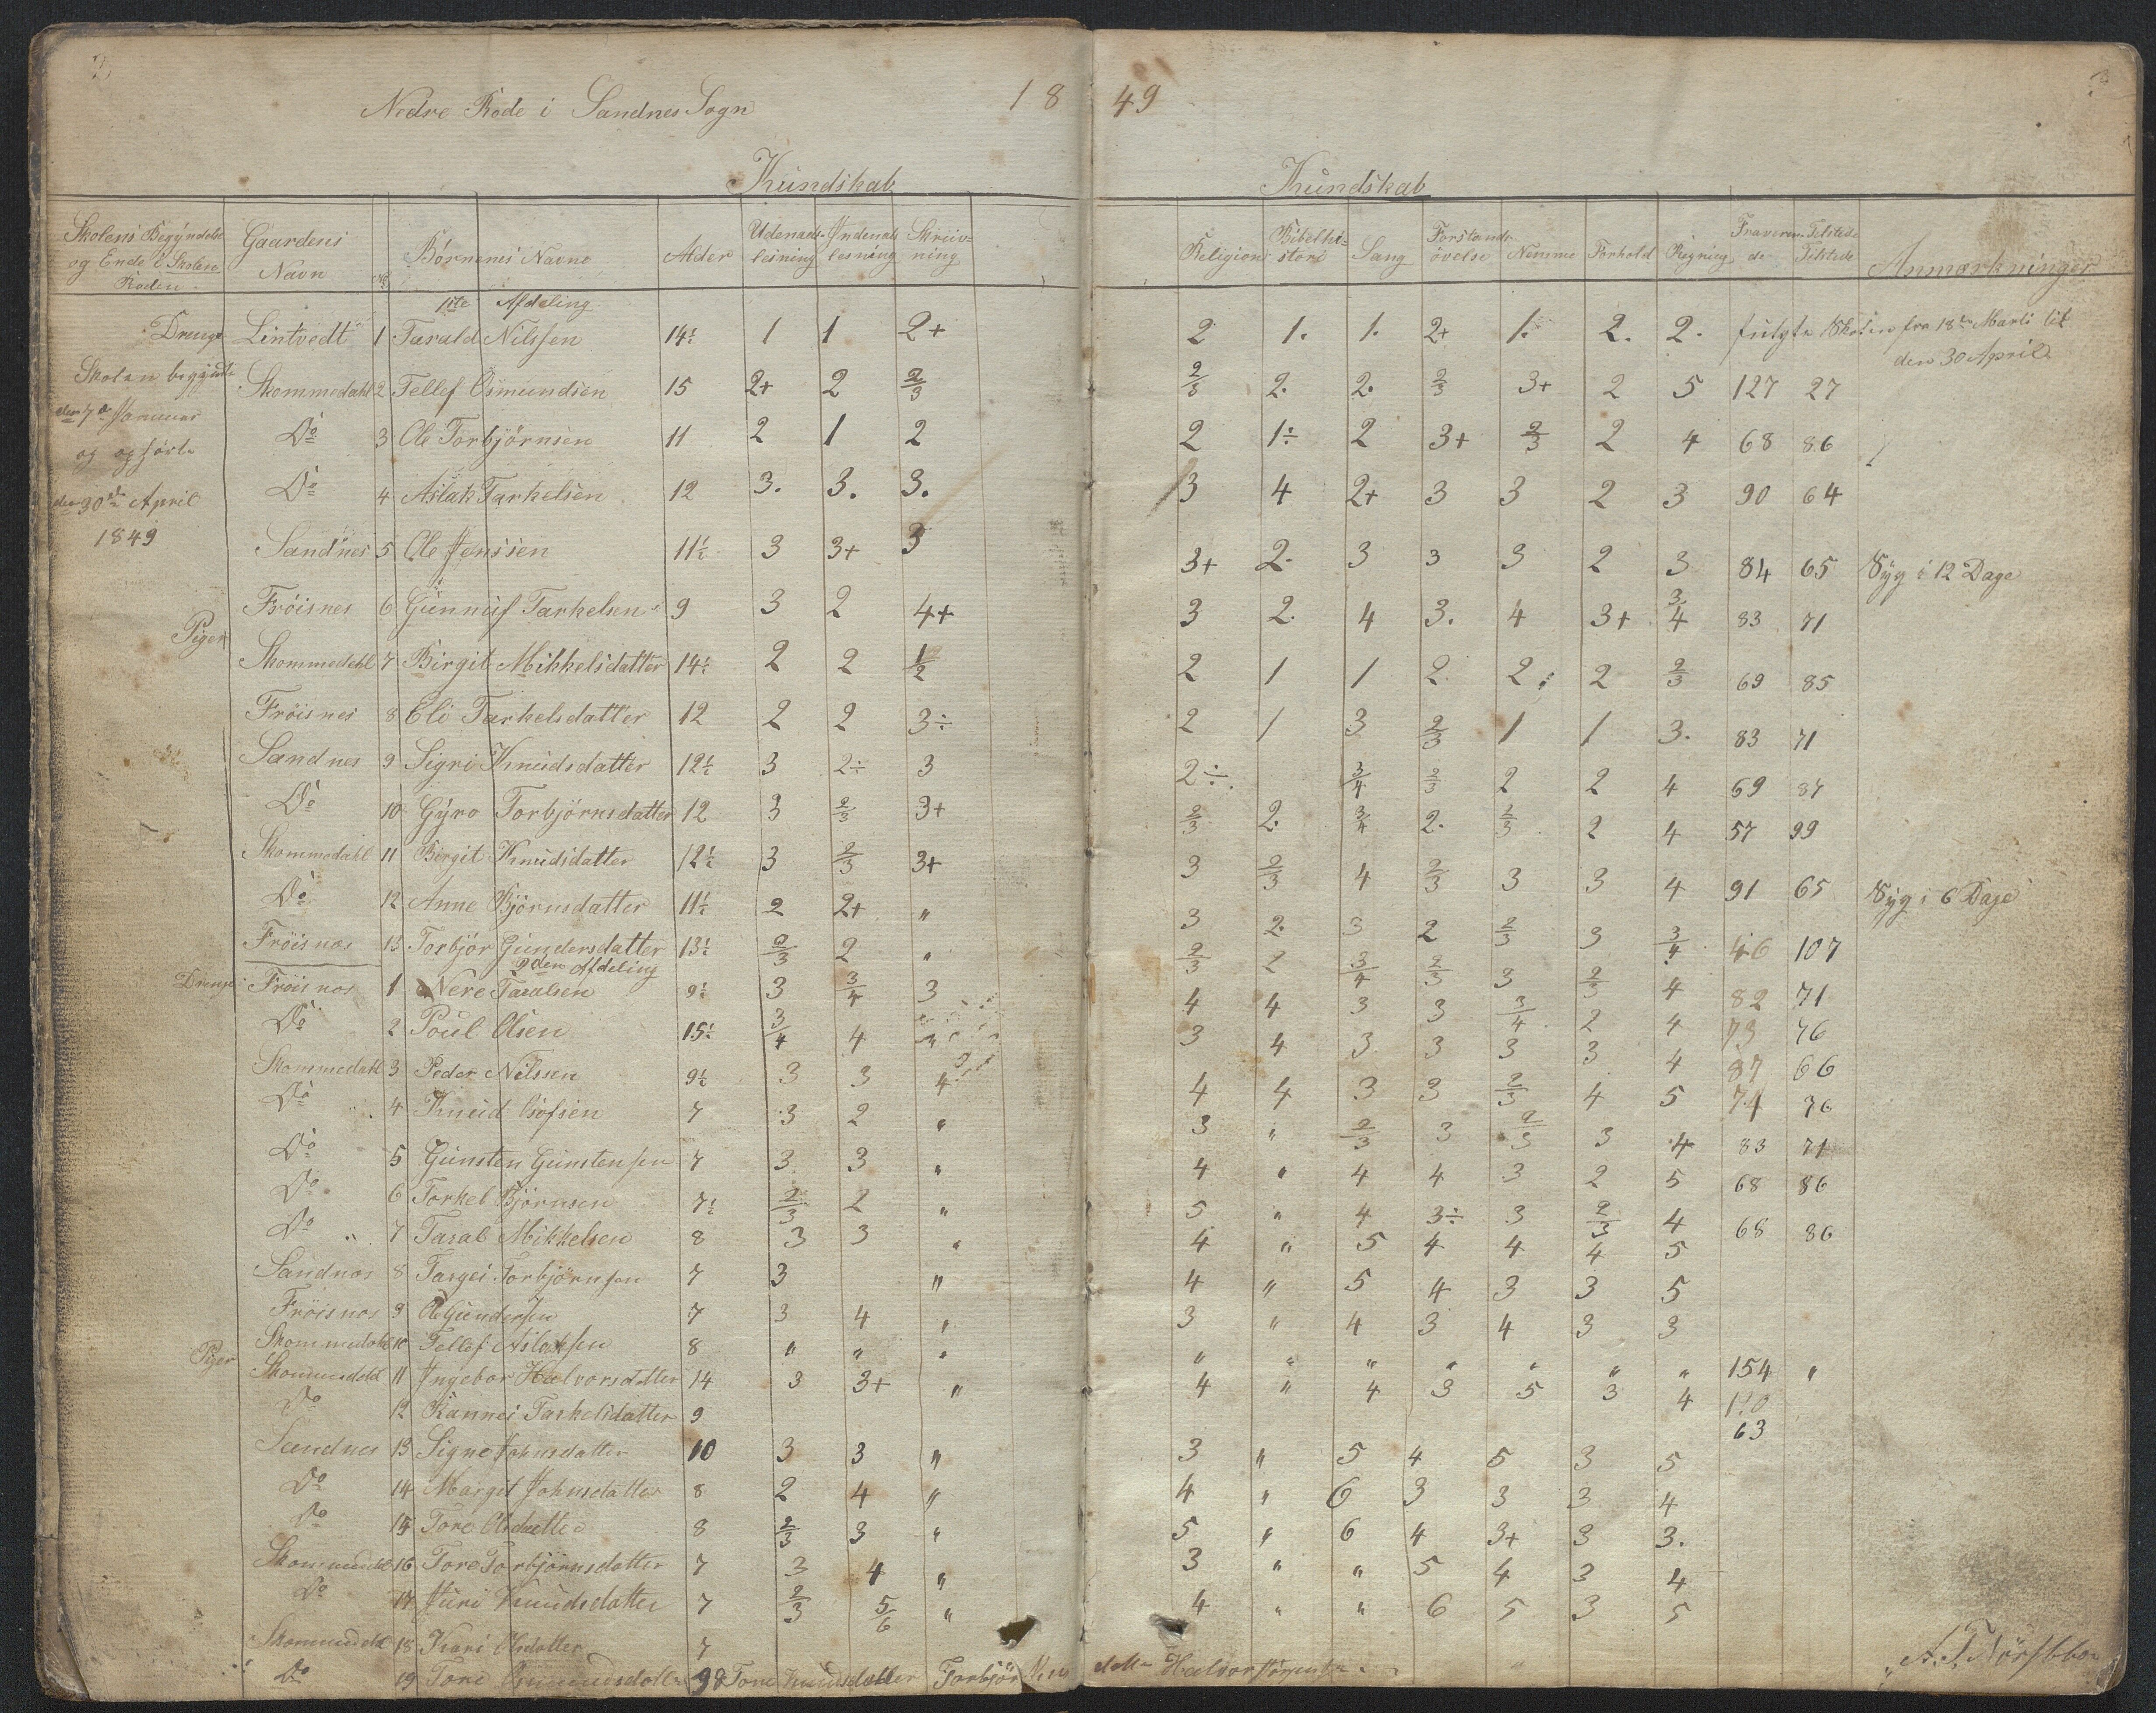 Nedre Rode i Sandnes Sogn 18 49
Kundskab Kundskab
Skolens Begyndelse og Ende i Skolen Roden. Gaardens Navn No Børnenes Navne Alder Udenads-lesning Indenads lesning Skriiv-ning Religion Bibelhi-storie Sang Forstands øvelse Nemme Forhold Regning Fraværen-de Tilstede Tilstede Anmærkninger
1ste Afdeling
Drenge Lintvedt 1 Tarald Nilssen 14½ 1 1 2+ 2 1. 1. 2+ 1. 2. 2. fulgte Skolen fra 18de Marti til
den 30 April
Skolen begyndte Skommedahl 2 Tellef Osmundsen 15 2+ 2 2/3 2/3 2. 2. 2/3 3+ 2 5 127 27
den 7de Januar
og ophørte Do 3 Ole Torbjörnsen 11 2 1 2 2 1÷ 2 3+ 2/3 2 4 68 86
den 30de April Do 4 Aslak Tarkelsen 12 3. 3. 3. 3 4 2+ 3 3 2 3 90 64
1849 Sandnes 5 Ole Jenssen 11½ 3 3+ 3 3+ 2. 3 3 3 2 3 84 65 Syg i 12 Dage
Fröisnes 6 Gunnuf Tarkelsen 9 3 2 4+ 3 2. 4 3. 4 3+ 3/4 83 71
Piger Skommedahl 7 Birgit Mikkelsdatter 14½ 2 2 1/2 2 1 1 2 2 2 2/3 69 85
Fröisnes 8 Eli Tarkelsdatter 12 2 2 3÷ 2 1 3 2/3 1 1 3. 83 71
Sandnes 9 Sigri Knudsdatter 12½ 3 2÷ 3 2÷ 3/4 2/3 2 2 4 69 87
Do 10 Gyro Torbjörnsdatter 12 3 2/3 3+ 2/3 2. 3/4 2. 2/3 2 4 57 99
Skommedahl 11 Birgit Knudsdatter 12½ 3 2/3 3+ 3 2/3 4 2/3 3 3 4 91 65 Syg i 6 Dage
Do 12 Anne Björnsdatter 11½ 2 2+ " 3 2. 3 2 2/3 3 3/4 46 107
Fröisnes 13 Torbjör Gundersdatter 13½ 2/3 2 " 2/3 2 3/4 2/3 3 2/3 4 82 71
2den Afdeling
Drenge Fröisnes 1 Nere Taralsen 9½ 3 3/4 3 4 4 3 3 3/4 2 4 73 76
Do 2 Poul Olsen 15½ 3/4 4 " 3 4 3 3 3 3 4 87 66
Skommedahl 3 Peder Nilssen 9½ 3 3 4 4 4 3 3 2/3 4 5 74 76
Do 4 Knud 7 3 2 " 3 " 2/3 3 2/3 3 4 83 71
Do 5 Gunsten Gunstensen 7 3 3 " 4 " 4 4 3 2 5 68 86
Do 6 Torkel Björnsen 7½ 2/3 2 " 5 " 4 3÷ 3 2/3 4 68 86
Do 7 Taral Mikkelsen 8 3 3 " 4 " 5 4 4 4 5
Sandnes 8 Targei Torbjörnsen 7 3 " 4 " 5 4 3 3 5
Fröisnes 9 Ole Gundersen 7 3 4 " 3 " 4 3 4 3 3
Skommedahl 10 Tellef Aslaksen 8 " " " " " " " " " " 154 "
Piger Skommedahl 11 Ingebor Halvorsdatter 14 3 3+ " 4 " 4 3 5 3 4
Do 12 Rannei Tarkelsdatter 9 63
Sandnes 13 Signe Johnsdatter 10 3 3 " 3 " 5 4 5 3 5
Do 14 Margit Johnsdatter 8 2 4 " 4 " 6 3 3 3 4
Do 15 Tore Olsdatter 8 2/3 3 " 5 " 6 4 3+ 3 3.
Skommedahl 16 Tore Torbjörnsdatter 7 3 4 " 3 " " 5 4 3 4
Do 17 Juri Knudsdatter 7 2/3 5/6 " 4 " " 6 5 3 5
Skommedahl 18 Kari Olsdatter 7
Do 19 Tone Osmundsdatter 9 Tone Knudsdatter Torbjör